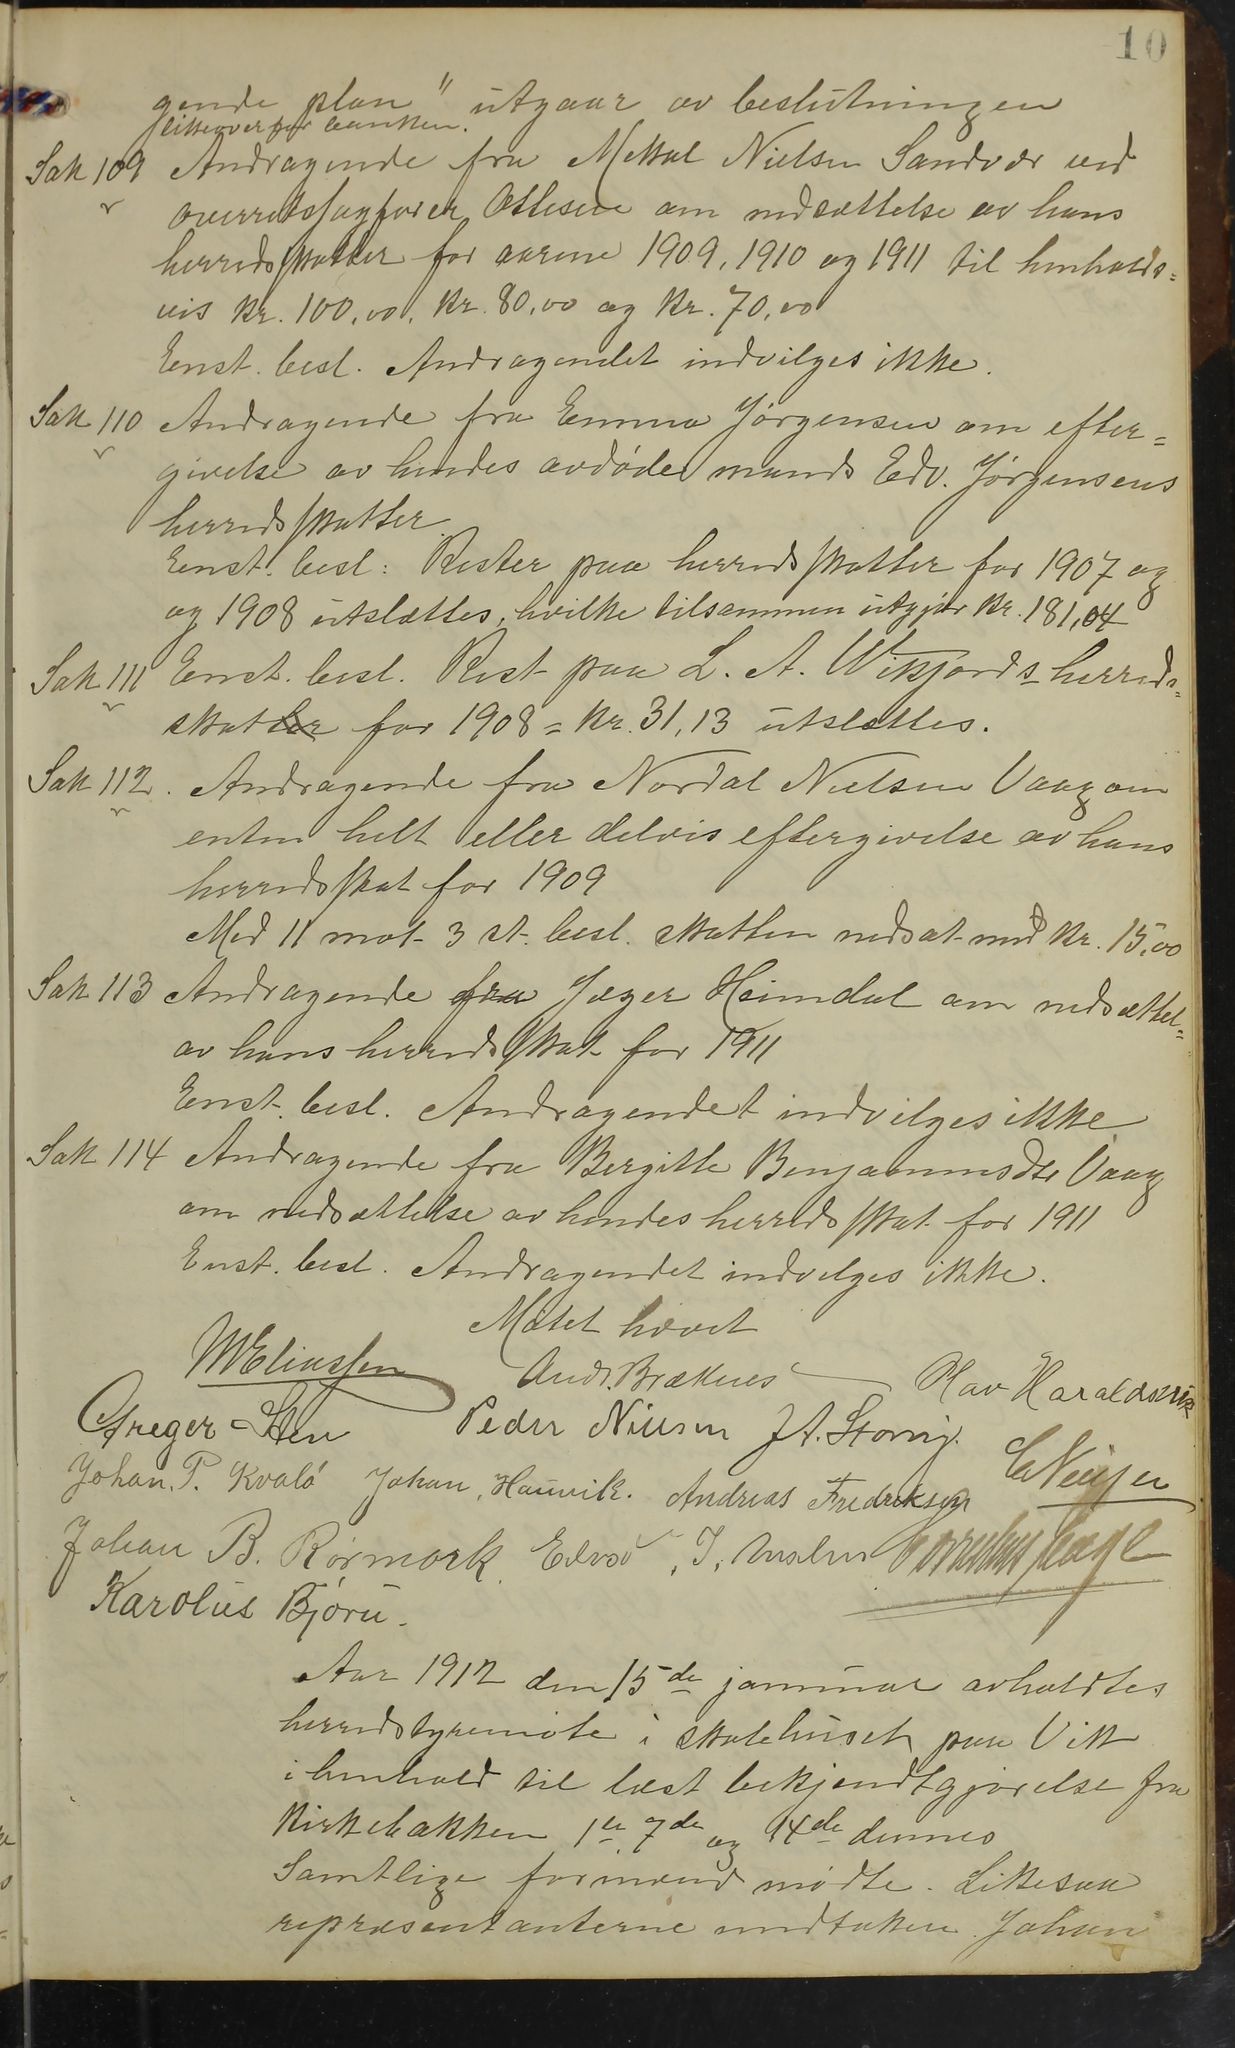 10
gende plan" utgaar av beslutningen
likeoverfor banken.
Sak 109 Andragende fra Mettal Nielsen Sandvær ved
overretssagfører Ottesen om nedsættelse av hans
herredsskatter for aarene 1909, 1910 og 1911 til henholds=
vis kr. 100,00, kr. 80,00 og kr. 70,00
Enst. besl. Andragendet indvilges ikke.
Sak 110 Andragende fra Emma Jørgensen om efter=
givelse av hendes avdøde mands Edv. Jørgensens
herredsskatter
Enst. besl: Rester paa herredsskatter for 1907 og
og 1908 utslættes, hvilke tilsammen utgjør kr. 181,04
Sak 111 Enst. besl. Rest paa L. A. Wikfjords herreds=
skatter for 1908 = kr. 31,13 utslættes.
Sak 112. Andragende fra Nordal Nielsen Vaag om
enten helt eller delvis eftergivelse av hans
herredsskat for 1909
Med 11 mot 3 st. besl. skatten nedsat med kr. 15,00
Sak 113 Andragende fra Jæger Heimdal om nedsættel=
av hans herredsskat for 1911
Enst. besl. Andragendet indvilges ikke
Sak 114 Andragende fra Bergitte Benjaminsdtr Vaag
om nedsættelse av hendes herredsskat for 1911
Enst. besl. Andragendet indvilges ikke.
Møtet hævet
M Eliassen Andr. Brækenes Hav Haraldsvik
Greger Sten Peder Nilsen J A. Storvig.
Johan. P. Kvalø Johan, Haunvik. Andreas Fredriksen
Johan B. Rørmork Edvard. J.
Karolus Bjørn.
Aar 1912 den 15de januar avholdtes
herredstyremøte i skolehuset paa Vik
i henhold til læst bekjendtgjørelse fra
Kirkebakken 1ste 7de og 14de dennes
Samtlige formænd mødte. Likesaa
repræsentanterne undtaken Johan